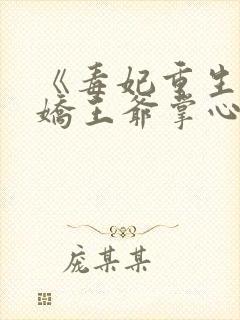 《毒妃重生
嬌王爺掌心
庞某某